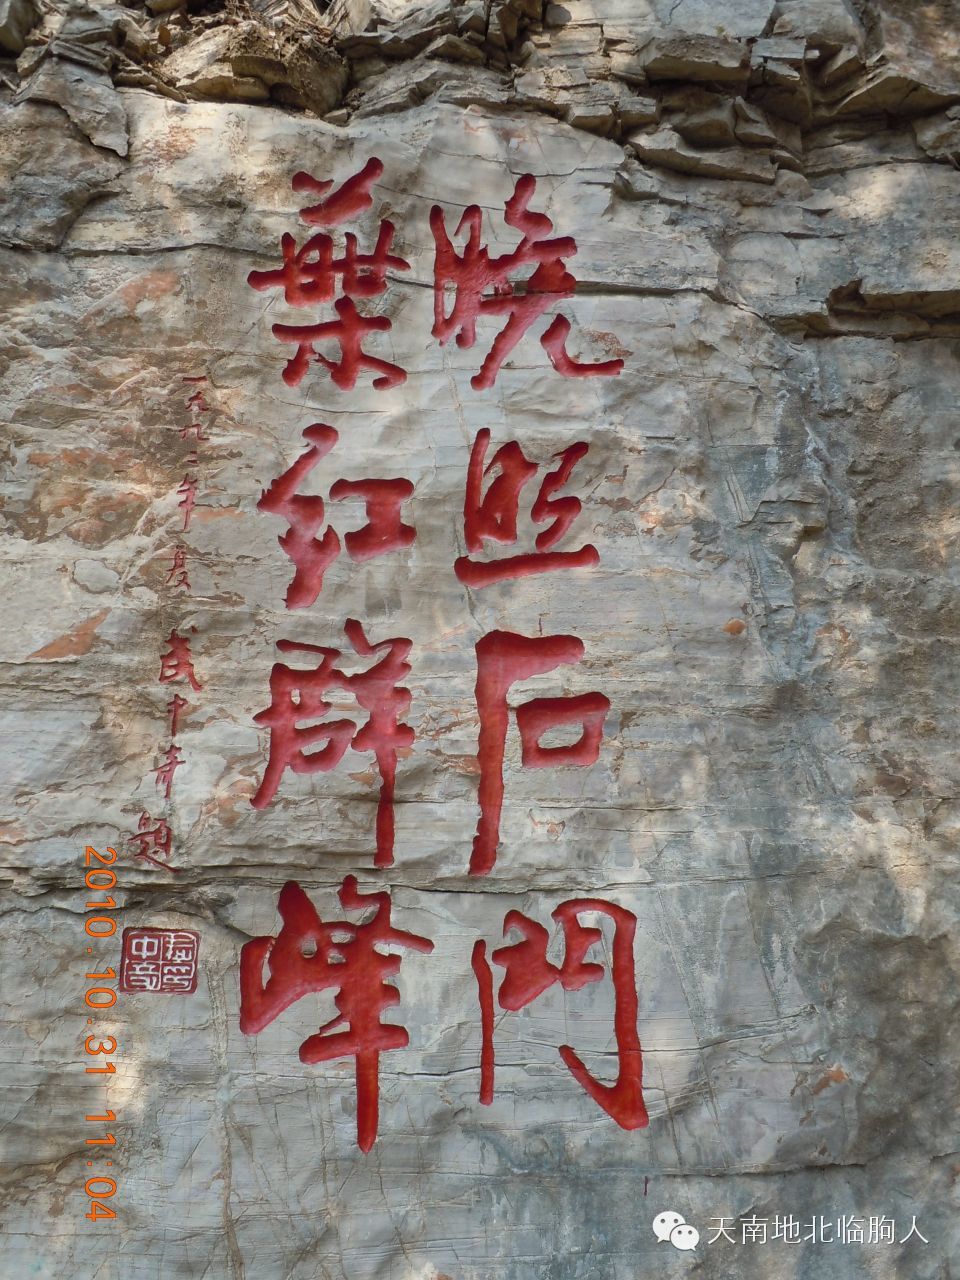 晚照石門
葉紅群峰
一九九二年夏 武中奇題
2010.10.31 11:04
天南地北临朐人